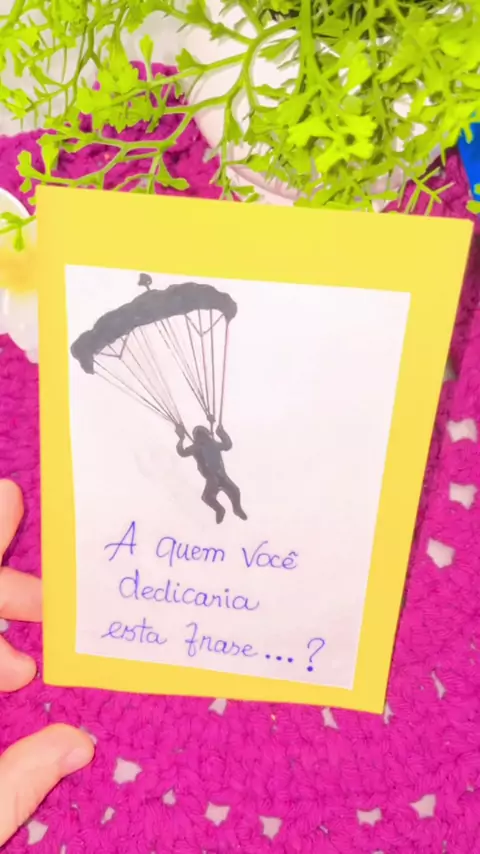 A quem você
dedicaria
esta frase...?